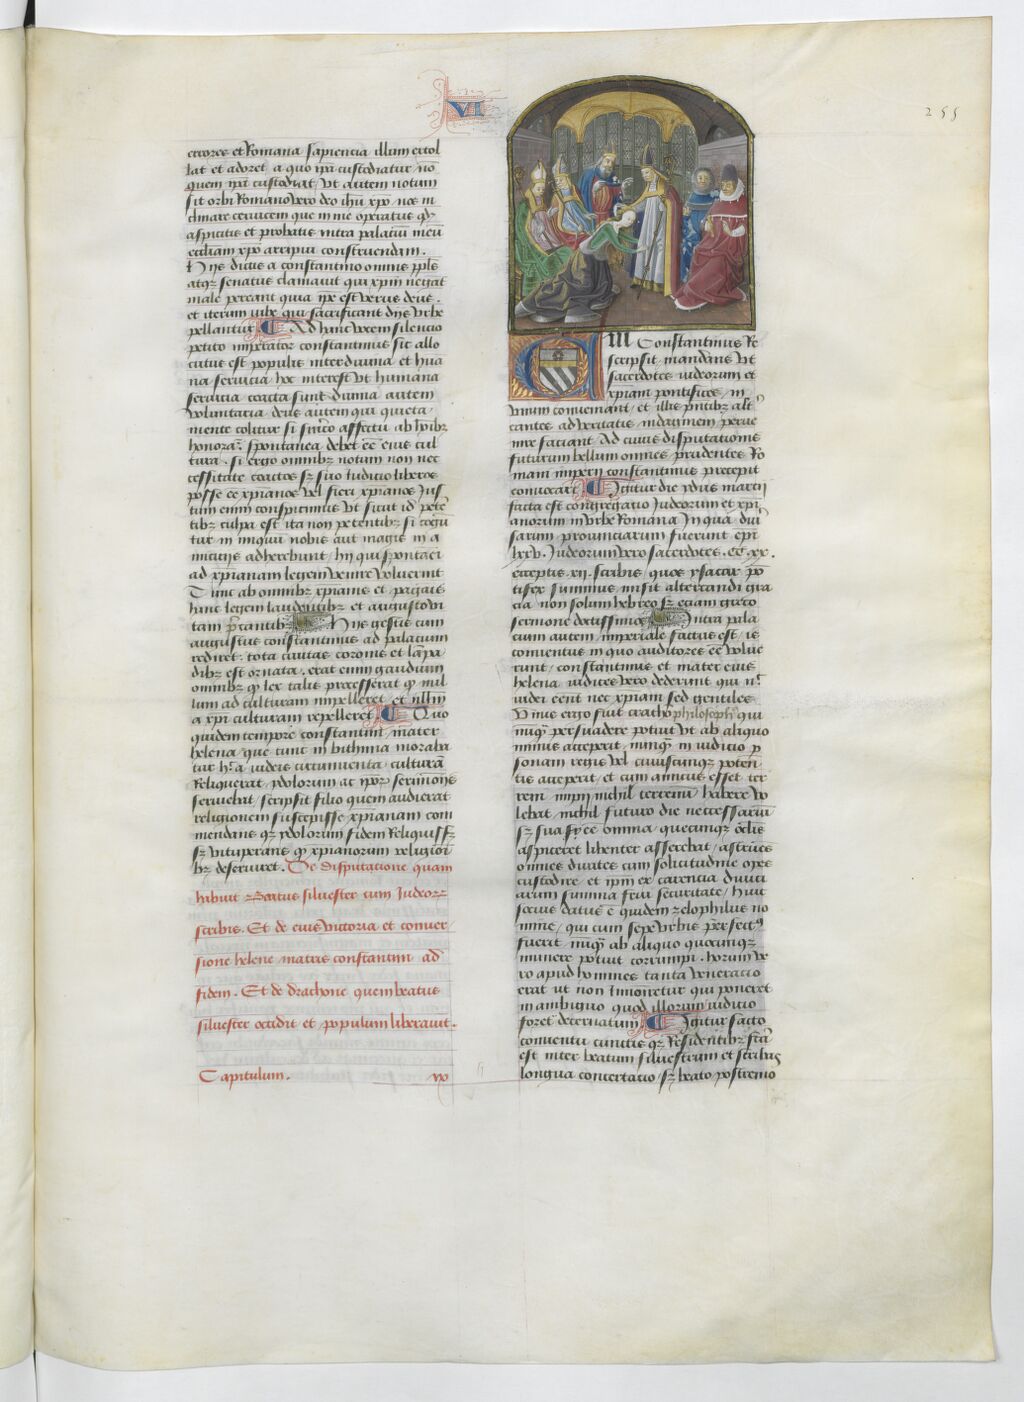 VI
255
errores et Romana sapiencia illum extol
lat et adoret a quo ip̄a custodiatur nō
quem ip̄a custodiat / vt autem notum
sit orbi Romano vero deo ih̄u xp̄o nos in
clinare ceruicem que in me operatus q̄d
aspicitis et probatis intra palaciū meū
eccl̄iam xp̄o arripui construendam .
Hijs dictis a constantino omnis ppl̄s
atqꝫ senatus clamauit qui xp̄m negat
male pereant quia ip̄e est verus deus .
et iterum qui sacrificant dijs vrbe
pellantur Ad hanc vocem silencio
petito imperator constantinus sic allo
cutus est populis inter diuina et hūa
na seruicia hoc interest vt humana
seruicia coacta sunt diuina autem
voluntaria / deus autem qui quieta
mente colitur si sincero affectu ab hoībꝫ
honorat̄ spontanea debet eē eius cul
tura . si ergo omnibꝫ notum non nec
cessitate coactos sꝫ suo iudicio liberos
posse xp̄ianos vel fieri xp̄ianos Jus
tum enim conspicimus vt sicut id pete
tibꝫ culpa est ita non petentibꝫ si
tur iniquum nobis aut magis in a
micicijs adherebunt / hij qui spontanei
ad xp̄ianam legem venire voluerint
Tunc ab omnibꝫ xp̄ianis et paganis
hanc legem laudentibꝫ et augusto vi
tam p̄cantibꝫ Hijs gestis cum
augustus constantinus ad palacium
rediret / tota ciuitas coronis et lāpa
dibꝫ est ornata . erat enim gaudium
omnibꝫ qꝫ lex talis processerat qꝫ nul
lum ad culturam impelleret et nullū
a xp̄i culturam repelleret Quo
quidem tempore constantini mater
helena / que tunc in bithinia moraba
tur h a iudeis circumuenta culturā
Reliquerat ydolorum ac ip̄orꝫ sermonis
seruiebat / scripsit filio quem audierat
religionem suscepisse xp̄ianam com
mendans qꝫ ydolorum fidem Reliquissꝫ
sꝫ vituperans qꝫ xp̄ianorum religiōi
deseruiret . De disputacione quam
habuit Beatus siluester cum Judeorꝫ
scribis . Et de eius victoria et conuer
sione helene matris constantini ad
fidem . Et de drachone quem beatus
siluester occidit et populum liberauit .
Capitulum .
Constantinus Re
scripsit mandans vt
sacerdotes iudeorum et
xp̄iani pontifices in
vnum conueniant / et illis p̄ntibꝫ alt
cantes ad veritatis indaginem perue
nire faciant Ad cuius disputationis
futurum bellum omnes prudentes Ro
mani imperij constantinus precepit
conuocari Igitur die ydus marcij
facta est congregacio Judeorum et xp̄i
anorum in vrbe Romana In qua diu
sarum prouinciarum fuerunt ep̄i
lxxv . Judeorum vero sacerdotes . xx .
exceptis . xij . scribis quos ysacar pō
tifex summus misit altercandi gra
cia non solum hebreo sꝫ eciam greco
sermone doctissimos Intra pala
cium autem imperiale factus est is
conuentus in quo auditores eē volue
runt / constantinus et mater eius
helena iudices vero dederunt qui nec
iudei eēnt nec xp̄iani sed gentiles
Vnus ergo fuit cracho philosophꝰ qui
nūqꝫ persuadere potuit vt ab aliquo
minus acceperit / nunqꝫ in iudicio p
sonam regis vel cuiuscunqꝫ poten
tis acceperit / et cum amicus esset ter
reni imp̄ij nichil terrenū habere vo
lebat / nichil futuro die neccessariū
sꝫ sua eē omnia quecunqꝫ oculis
aspiceret libenter asserebat / astruēs
omnes diuites cum solicitudine opes
custodire / et ip̄m ex carencia diuici
arum summa frui securitate / huic
socius datus ē quidem zelophilus no
mine / qui cum sepe vrbis perfectꝰ
fuerit / nūqꝫ ab aliquo quocunqꝫ
munere potuit corrumpi . horum ve
ro apud homines tanta veneracio
erat vt non Iniuretur qui poneret
in ambiguo quod illorum iudicio
foret decernatum Igitur facto
conuentu cunctis qꝫ Residentibꝫ fcā
est inter beatum siluestrum et scribas
longua concertacio / sꝫ beato postremo